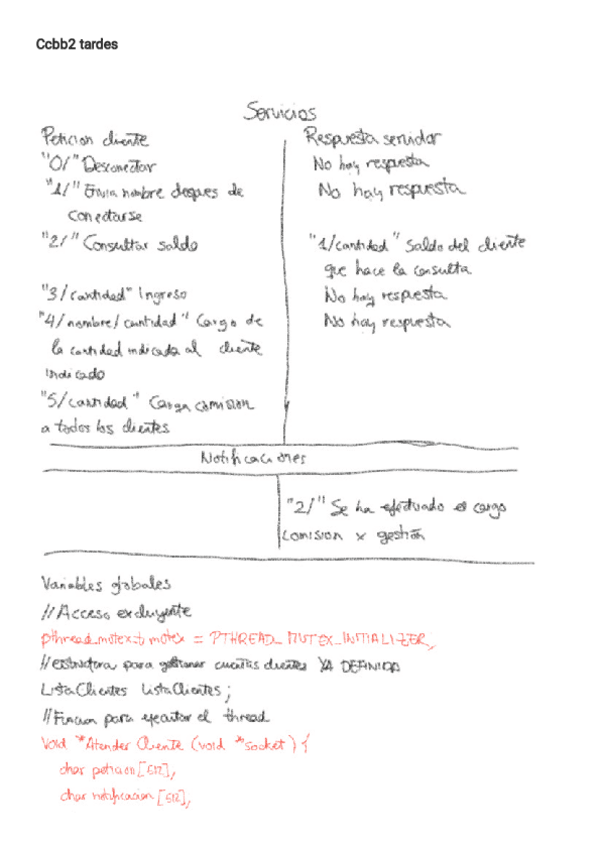 Ccbb2 tardes
Servicios
Peticion cliente
"0/" Desconectar
"1/" Envia nombre despues de
conectarse
"2/" Consultar saldo
"3/cantidad" Ingreso
"4/nombre/cantidad" Cargo de
la cantidad indicada al cliente
indicado
"5/cantidad" Carga comision
a todos los clientes
Respuesta servidor
No hay respuesta
No hay respuesta
"1/cantidad" Saldo del cliente
que hace la consulta
No hay respuesta
No hay respuesta
Notificaciones
"2/" Se ha efectuado el cargo
comision x gestión
Variables globales
//Acceso excluyente
pthread_mutex_t mutex = PTHREAD_MUTEX_INITIALIZER;
//estructura para gestionar cuentas clientes YA DEFINIDA
ListaClientes listaClientes;
//Funcion para ejecutar el thread
Void *Atender Cliente (void *socket) {
char peticion [512];
char notificacion [512];